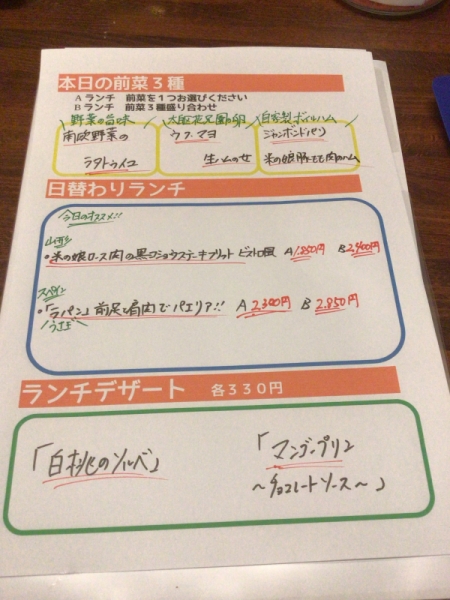 本日の前菜3種
Aランチ 前菜を1つお選びください
Bランチ 前菜3種盛り合わせ
野菜の旨味
南欧野菜の
ラタトゥイユ
ウフ・マヨ
生ハムのせ
自家製ボイルハム
ジャンボンドパリ
米の娘豚もも肉のハム
日替わりランチ
今日のオススメ!!
山形
・米の娘ロース肉の黒コショウステーキフリット ビストロ風 A 1,850円 B 2,400円
スペイン
・「ラパン」前足と肩肉でパエリア!! A 2,300円 B 2,850円
うさぎ
ランチデザート 各330円
「白桃のソルベ」
「マンゴープリン
〜チョコレートソース〜」